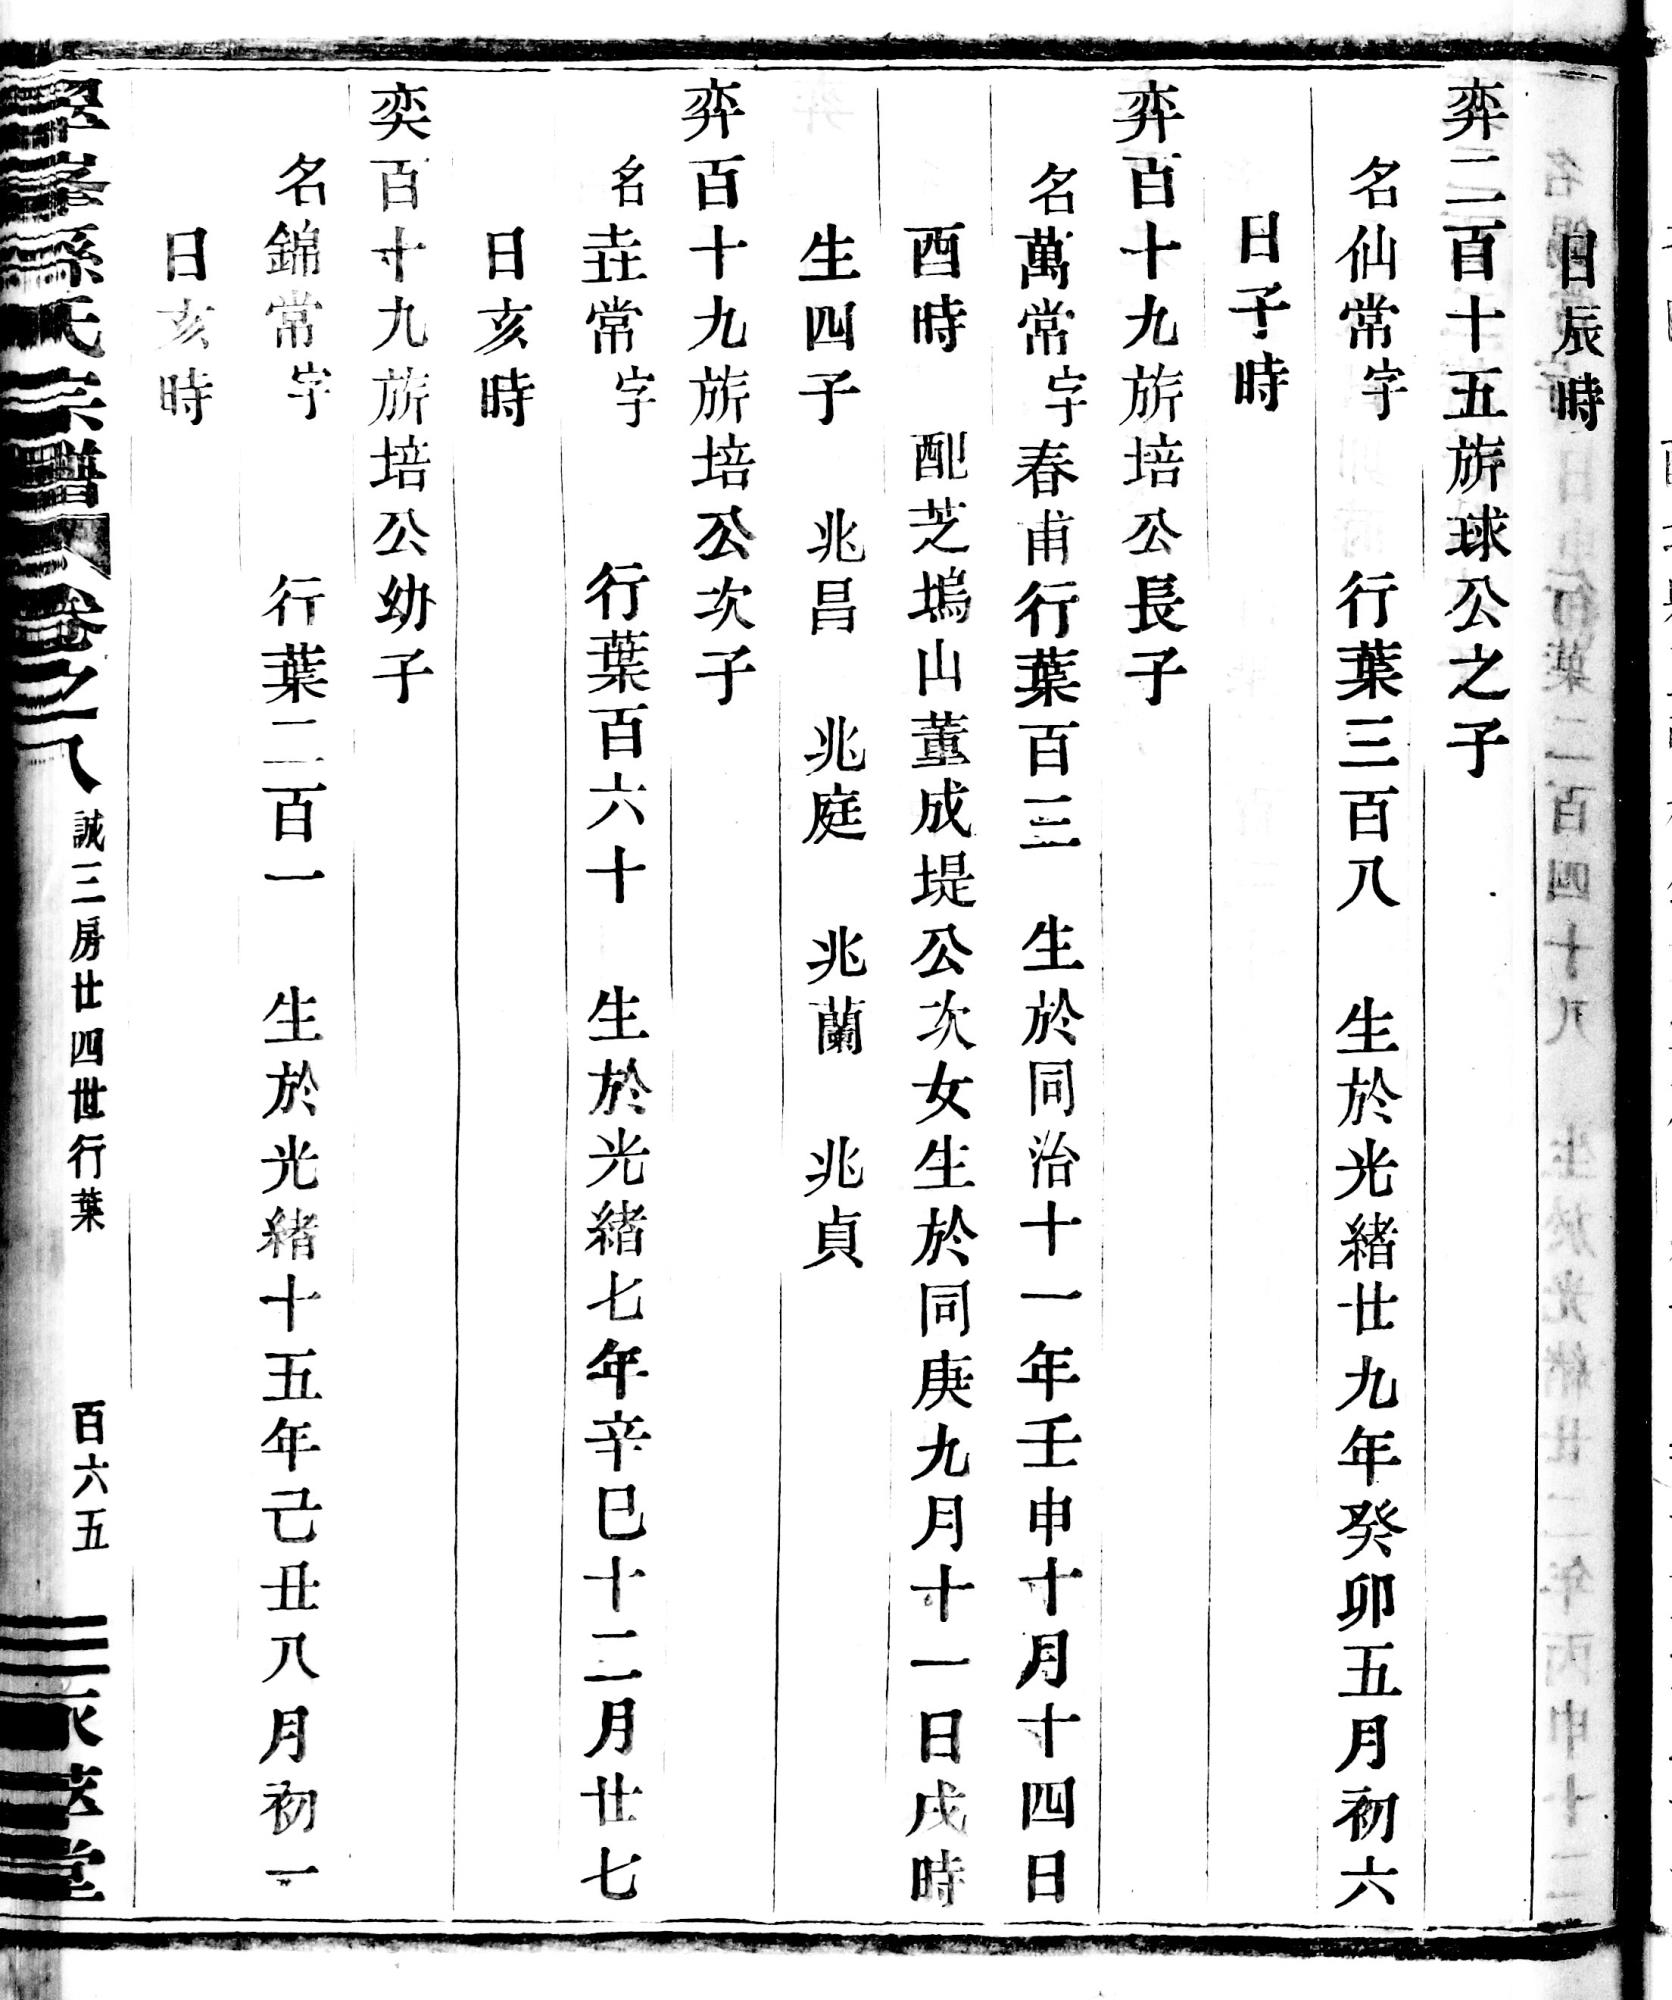 日辰時
弈二百十五旂球公之子
名仙常字 行葉三百八 生於光緒廿九年癸卯五月初六
日子時
弈百十九旂培公長子
名萬常字春甫行葉百三 生於同治十一年壬申十月十四日
酉時 配芝塢山董成堤公次女生於同庚九月十一日戌時
生四子 兆昌 兆庭 兆蘭 兆貞
弈百十九旂培公次子
名垚常字 行葉百六十 生於光緒七年辛巳十二月廿七
日亥時
奕百十九旂培公幼子
名錦常字 行葉二百一 生於光緒十五年己丑八月初一
日亥時
孫氏宗譜 卷之八 誠三房廿四世行葉 百六五 堂